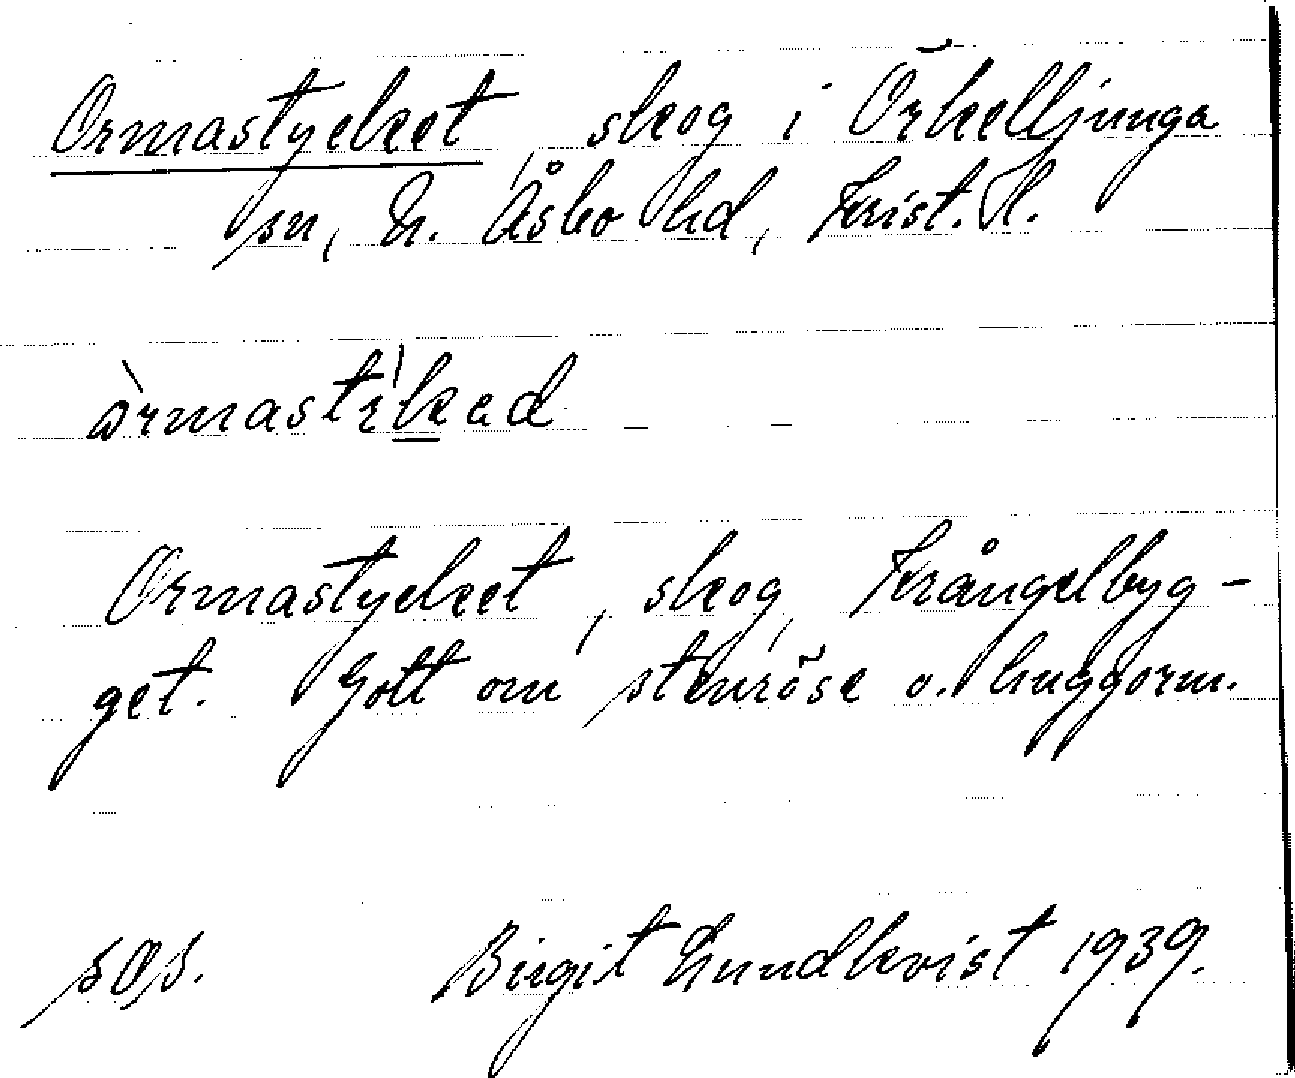 Ormastycket, skog i Örkelljunga
sn, N. Åsbo hd, Krist. l.
òrmastikad
Ormastycket, skog, Krångelbyg-
get. Gott om stenröse o. huggorm.
Birgit Lundkvist 1939.